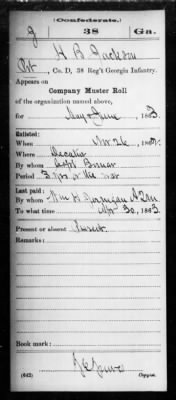 (Confederate.)
J 38 Ga.
H B Jackson
Pvt, Co. D, 38 Reg't Georgia Infantry.
Appears on
Company Muster Roll
of the organization named above,
for May & June, 1863.
Enlisted:
When 26, 186
Where Decatur
By whom Capt
Period 3 yrs or the war
Last paid:
By whom Wm H
To what time Apr 30, 1863
Present or absent Present
Remarks:
Book mark:
(642) Copyist.